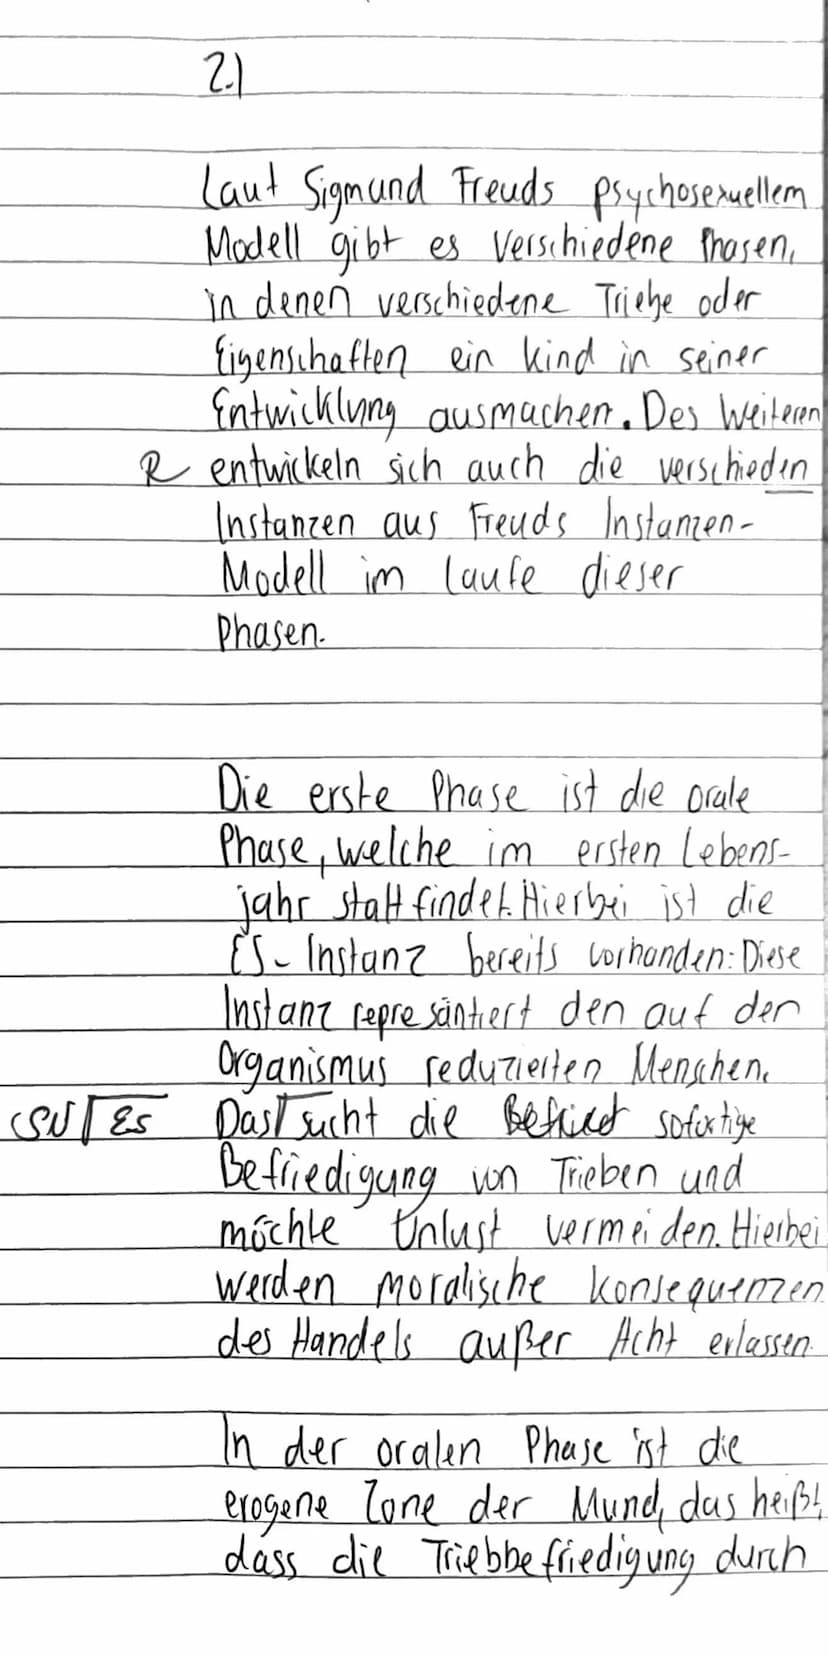 2.1
Laut Sigmund Freuds psychosexuellem
Modell gibt es verschiedene Phasen,
in denen verschiedene Triebe oder
Eigenschaften ein Kind in seiner
Entwicklung ausmachen. Des Weiteren
R entwickeln sich auch die verschieden
Instanzen aus Freuds Instanzen-
Modell im Laufe dieser
Phasen.
Die erste Phase ist die orale
Phase, welche im ersten Lebens-
jahr stattfindet. Hierbei ist die
ES-Instanz bereits vorhanden: Diese
Instanz represäntiert den auf den
Organismus reduzierten Menschen.
Das sucht die sofortige
Befriedigung von Trieben und
möchte Unlust vermeiden. Hierbei
werden moralische Konsequenzen
des Handels außer Acht erlassen.
In der oralen Phase ist die
erogene Zone der Mund, das heißt,
dass die Triebbefriedigung durch